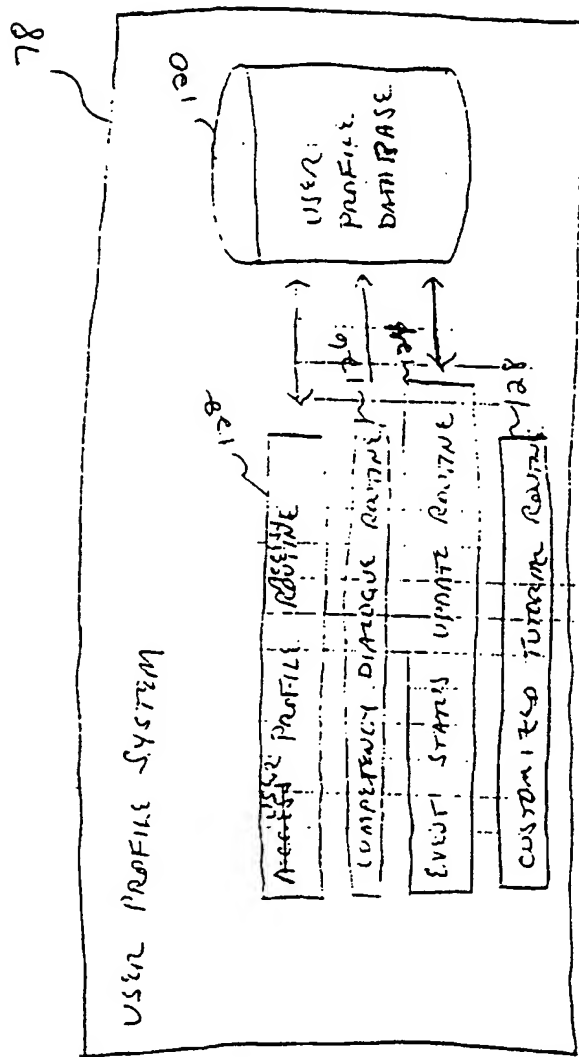 78
USER PROFILE SYSTEM
120
USER
PROFILE
DATABASE
USER PROFILE ACCESS
ROUTINE
126
COMPETENCY DIALOGUE ROUTINE
EVENT STATUS UPDATE ROUTINE
128
CUSTOMIZED TUTORIAL ROUTINE